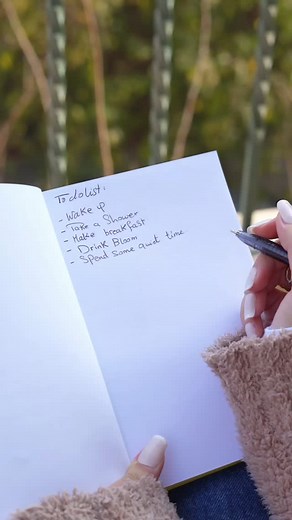 To do list:
- Wake up
- Take a Shower
- Make breakfast
- Drink Bloom
- Spend some quiet time